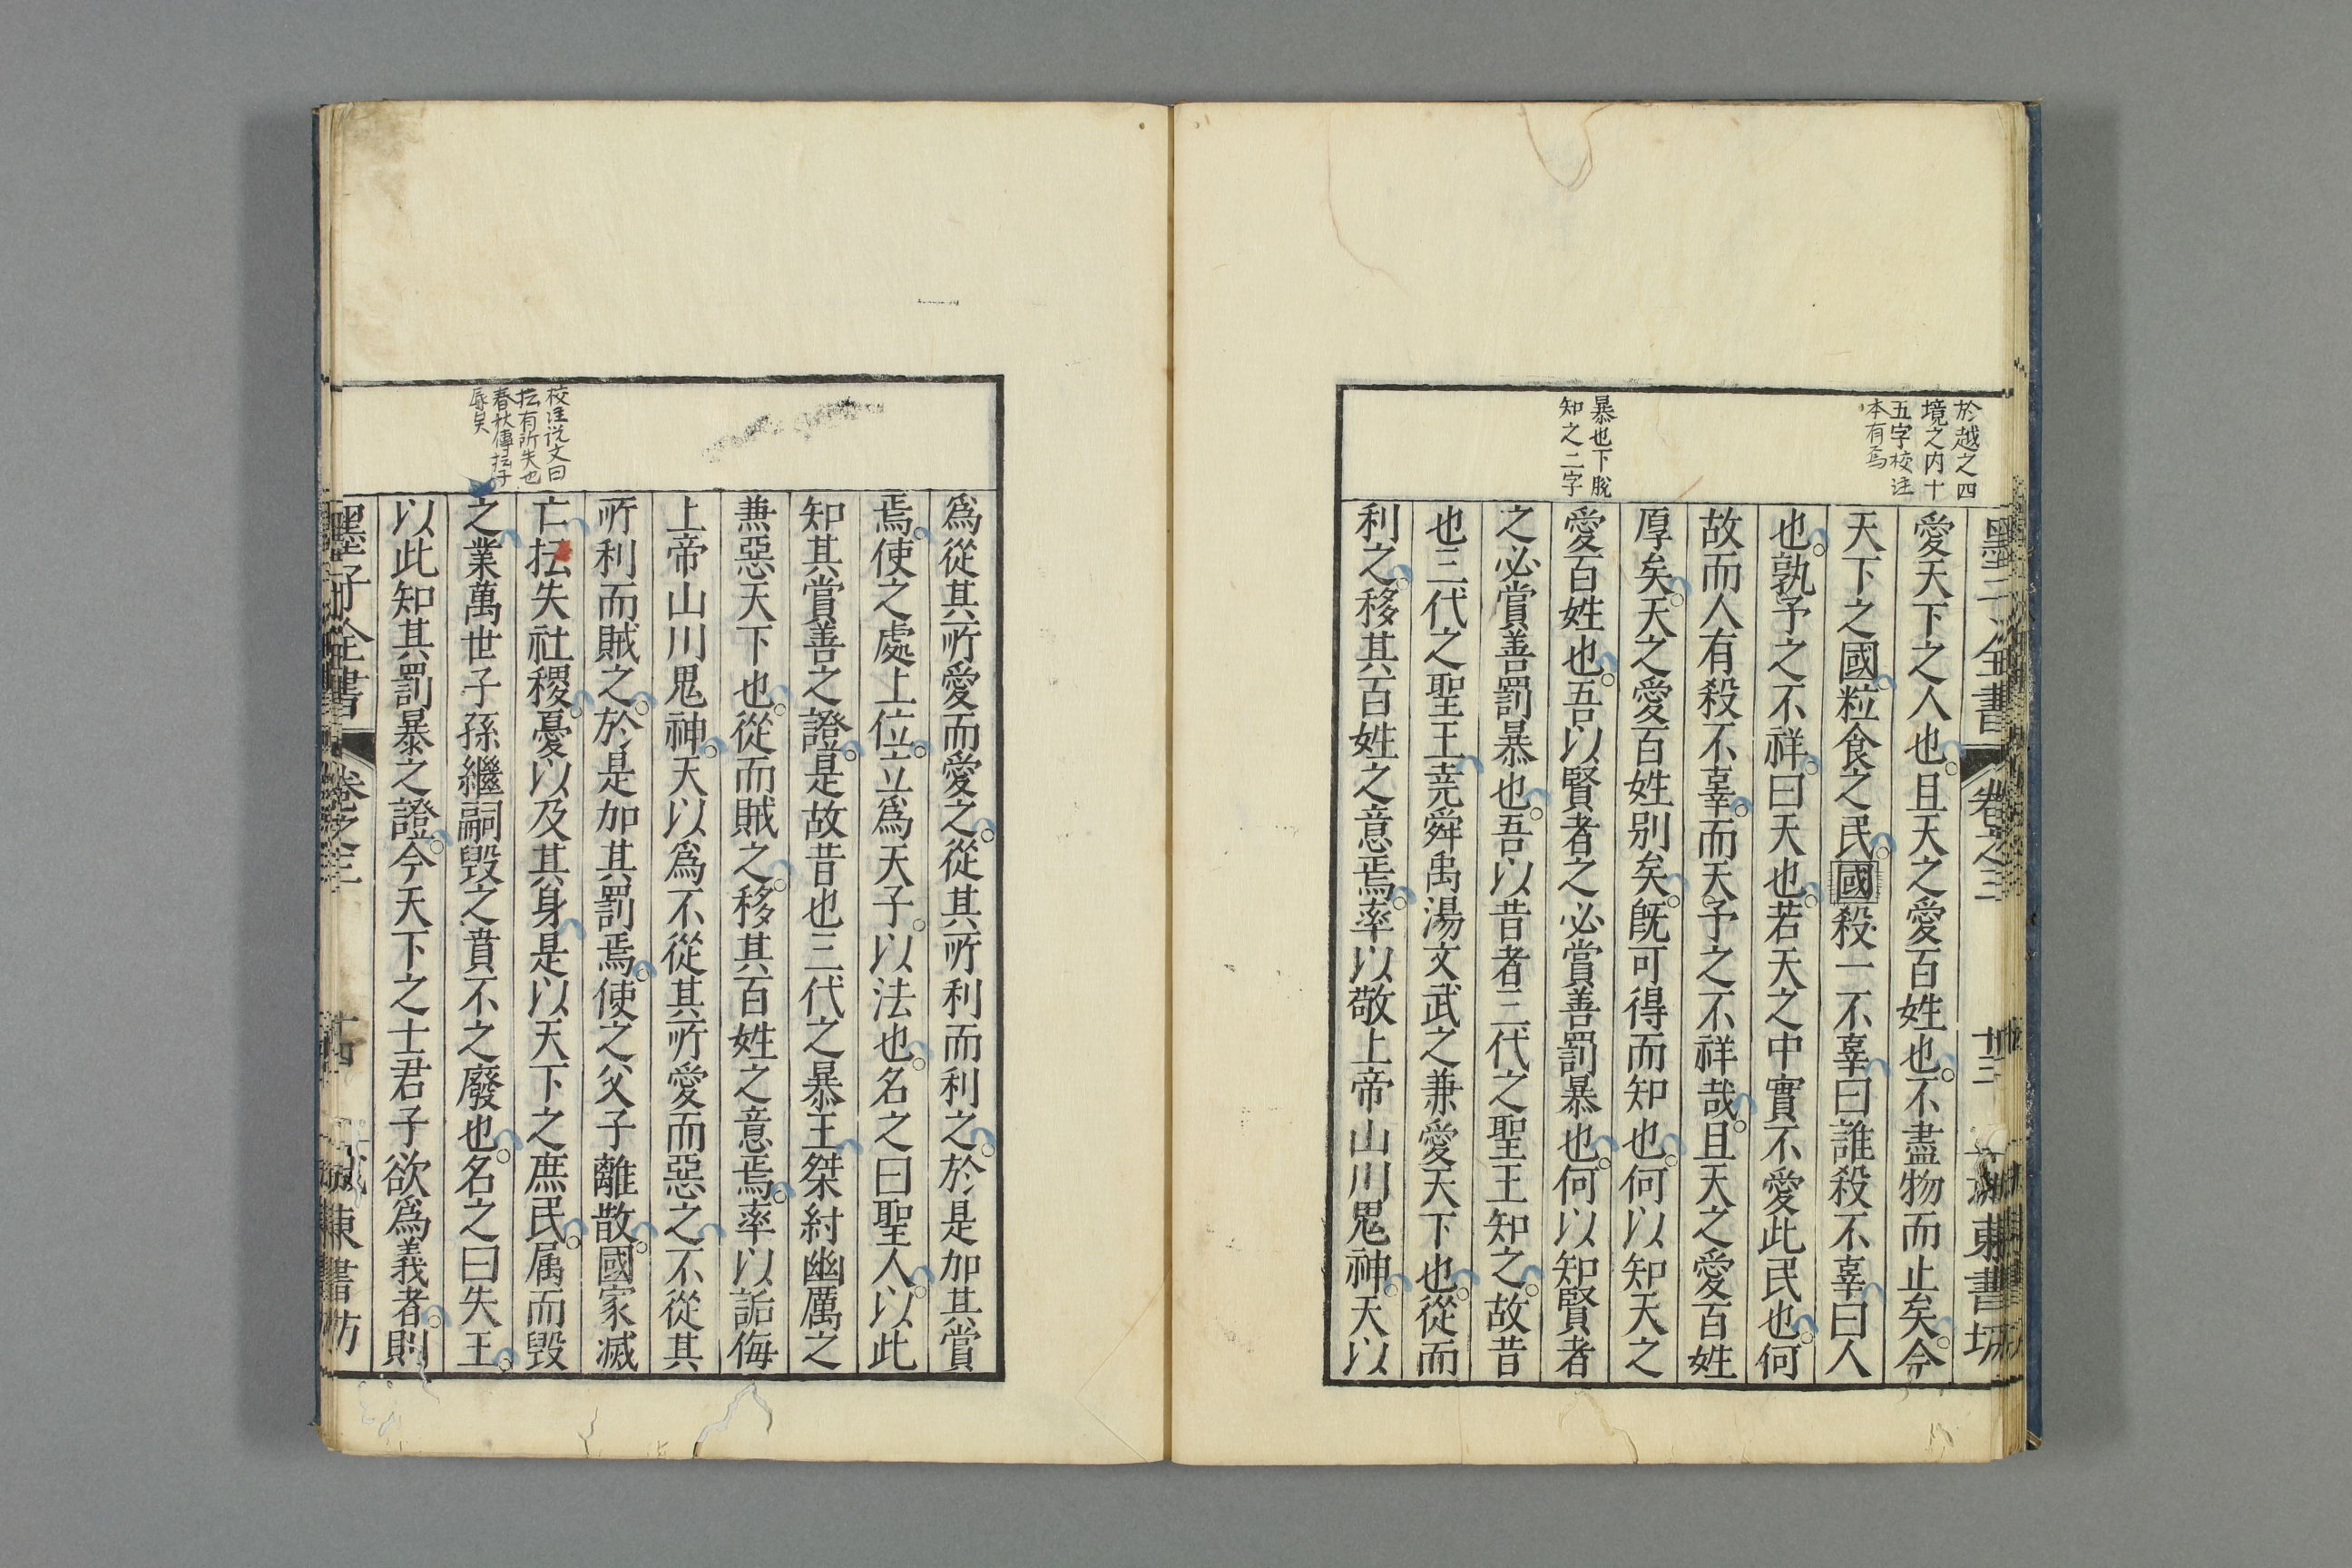 墨子全書 卷之三 廿三 城東書坊
於越之四
境之内十
五字校注
本有焉
愛天下之人也。且天之愛百姓也。不盡物而止矣。今
天下之國粒食之民。國殺一不辜曰誰殺不辜曰人
也。孰予之不祥。曰天也。若天之中實不愛此民也。何
故而人有殺不辜。而天予之不祥哉。且天之愛百姓
厚矣。天之愛百姓别矣。旣可得而知也。何以知天之
暴也下脫
知之二字
愛百姓也。吾以賢者之必賞善罰暴也。何以知賢者
之必賞善罰暴也。吾以昔者三代之聖王知之。故昔
也三代之聖王堯舜禹湯文武之兼愛天下也。從而
利之。移其百姓之意焉。率以敬上帝山川鬼神。天以
爲從其所愛而愛之。從其所利而利之。於是加其賞
焉。使之處上位。立爲天子。以法也。名之曰聖人。以此
知其賞善之證。是故昔也三代之暴王桀紂幽厲之
兼惡天下也。從而賊之。移其百姓之意焉。率以詬侮
上帝山川鬼神。天以爲不從其所愛而惡之不從其
所利而賊之。於是加其罰焉。使之父子離散。國家滅
校注説文曰
抎有所失也
春秋傳抎子
辱矣
亡抎失社稷。憂以及其身是以天下之庶民。属而毀
之業萬世子孫繼嗣毀之賁不之廢也。名之曰失王。
以此知其罰暴之證。今天下之士君子欲爲義者。則
墨子全書 卷之三 廿四 城東書坊